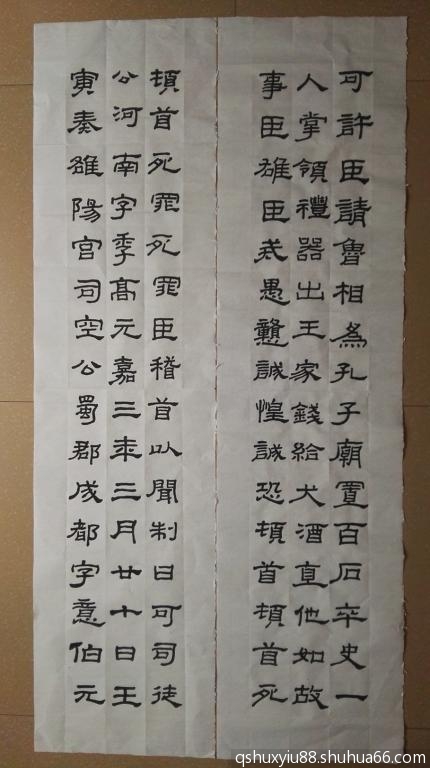 可許臣請魯相為孔子廟置百石卒史一
人掌領禮器出王家錢給犬酒直他如故
事臣雄臣戒愚戇誠惶誠恐頓首頓首死
頓首死罪死罪臣稽首以聞制曰可司徒
公河南字季高元嘉三年三月廿十日王
寅奏雒陽宮司空公蜀郡成都字意伯元
qshuxyiu88.shuhua66.com